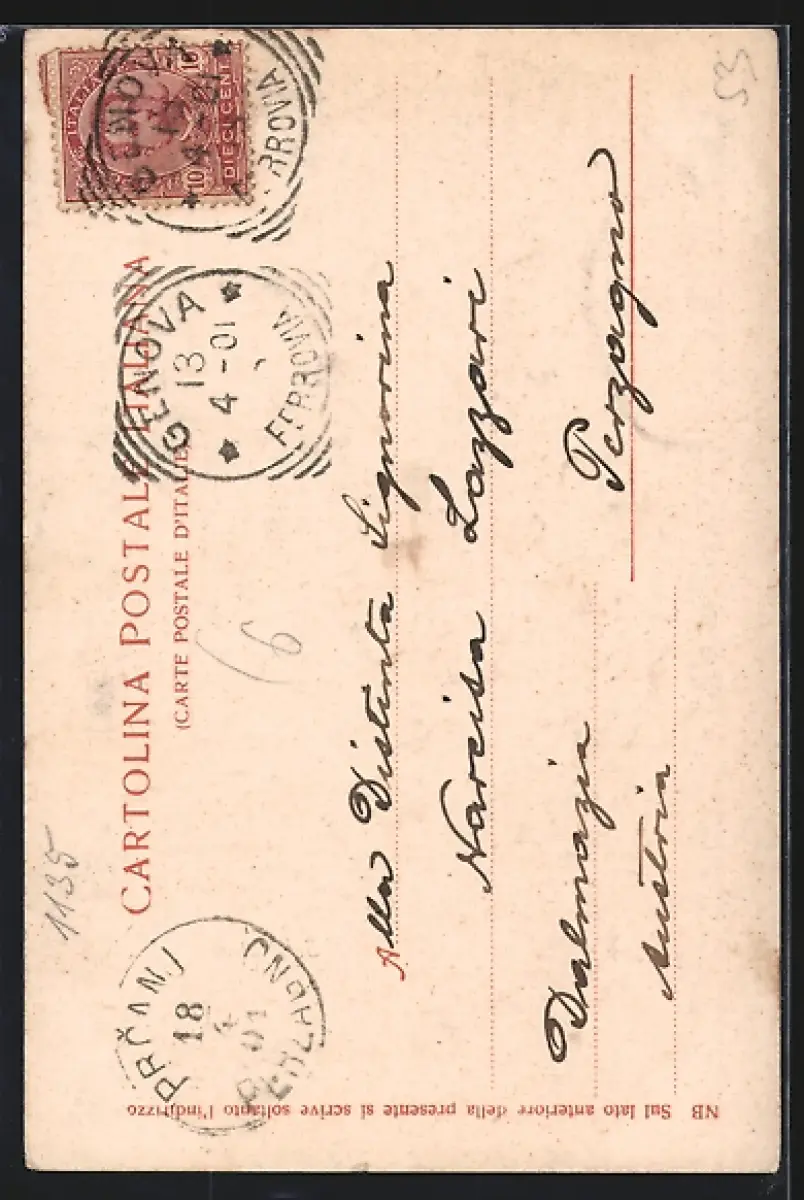 CARTOLINA POSTALE ITALIANA
(CARTE POSTALE D'ITALIE)
ITALIA
10 10
DIECI CENT.
GENOVA
13
4-01
FERROVIA
GENOVA
13
4-01
FERROVIA
PRČANJ
18
4
01
PERZAGNO
1135
6
535
Alla Distinta Signorina
Narcisa Lazzari
Perzagno
Dalmazia
Austria
NB Sul lato anteriore della presente si scrive soltanto l'indirizzo